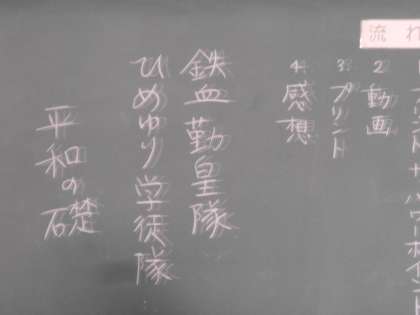 流れ
1.プリント+パワーポイント
2 動画
3.プリント
4 感想
鉄血勤皇隊
ひめゆり学徒隊
平和の礎